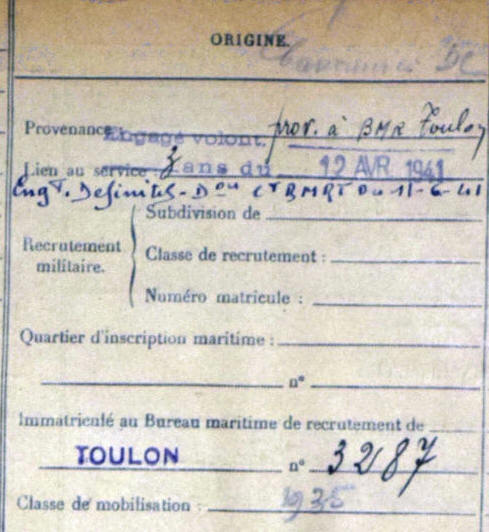 ORIGINE.
Provenance Engagé volont. prov. à BMR Toulon
Lien au service : 3 ans du 12 AVR. 1941
Engt. Définitif - Don Ct BMRT du 11-6-41
Recrutement militaire.
Subdivision de
Classe de recrutement :
Numéro matricule :
Quartier d'inscription maritime :
n°
Immatriculé au Bureau maritime de recrutement de
TOULON n° 3287
Classe de mobilisation : 1935